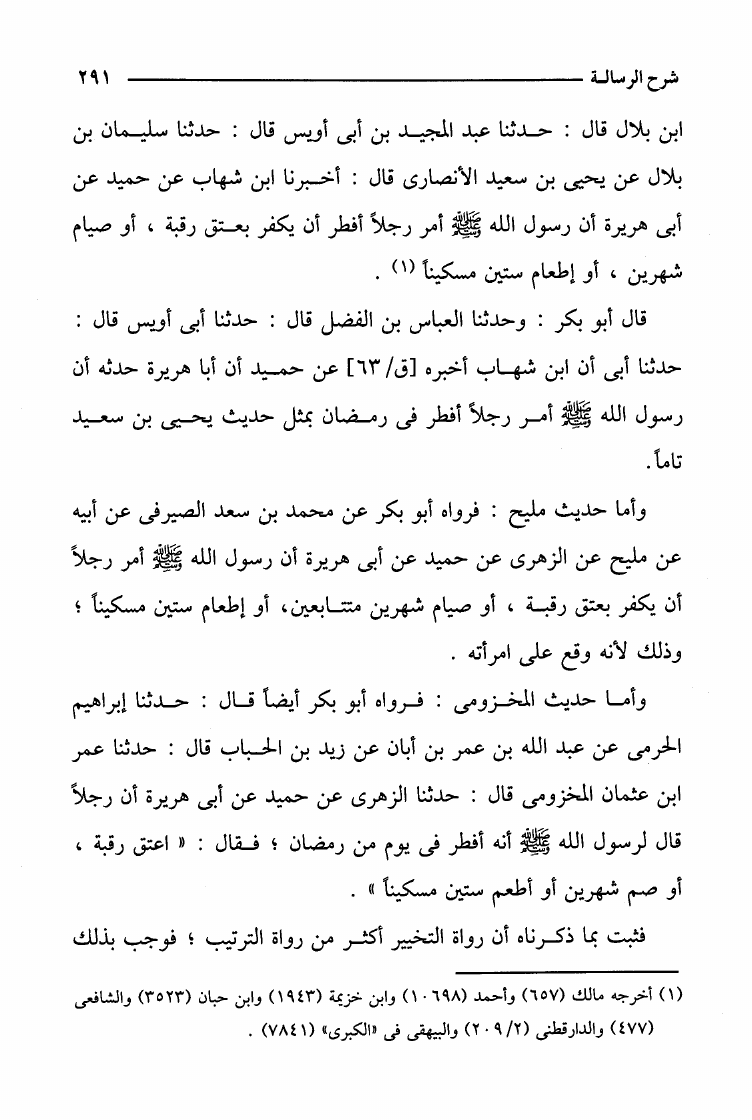 شرح الرسالة ٢٩١
ابن بلال قال : حدثنا عبد المجيد بن أبى أويس قال : حدثنا سليمان بن
بلال عن يحيى بن سعيد الأنصارى قال : أخبرنا ابن شهاب عن حميد عن
أبى هريرة أن رسول الله ﷺ أمر رجلاً أفطر أن يكفر بعتق رقبة ، أو صيام
شهرين ، أو إطعام ستين مسكيناً (١) .
قال أبو بكر : وحدثنا العباس بن الفضل قال : حدثنا أبى أويس قال :
حدثنا أبى أن ابن شهاب أخبره [ق/٦٣] عن حميد أن أبا هريرة حدثه أن
رسول الله ﷺ أمر رجلاً أفطر فى رمضان بمثل حديث يحيى بن سعيد
تاماً.
وأما حديث مليح : فرواه أبو بكر عن محمد بن سعد الصيرفى عن أبيه
عن مليح عن الزهرى عن حميد عن أبى هريرة أن رسول الله ﷺ أمر رجلاً
أن يكفر بعتق رقبة ، أو صيام شهرين متتابعين، أو إطعام ستين مسكيناً ؛
وذلك لأنه وقع على امرأته .
وأما حديث المخزومى : فرواه أبو بكر أيضاً قال : حدثنا إبراهيم
الحرمى عن عبد الله بن عمر بن أبان عن زيد بن الحباب قال : حدثنا عمر
ابن عثمان المخزومى قال : حدثنا الزهرى عن حميد عن أبى هريرة أن رجلاً
قال لرسول الله ﷺ أنه أفطر فى يوم من رمضان ؛ فقال : « اعتق رقبة ،
أو صم شهرين أو أطعم ستين مسكيناً » .
فثبت بما ذكرناه أن رواة التخيير أكثر من رواة الترتيب ؛ فوجب بذلك
(١) أخرجه مالك (٦٥٧) وأحمد (١٠٦٩٨) وابن خزيمة (١٩٤٣) وابن حبان (٣٥٢٣) والشافعى
(٤٧٧) والدارقطنى (٢٠٩/٢) والبيهقى فى «الكبرى» (٧٨٤١) .